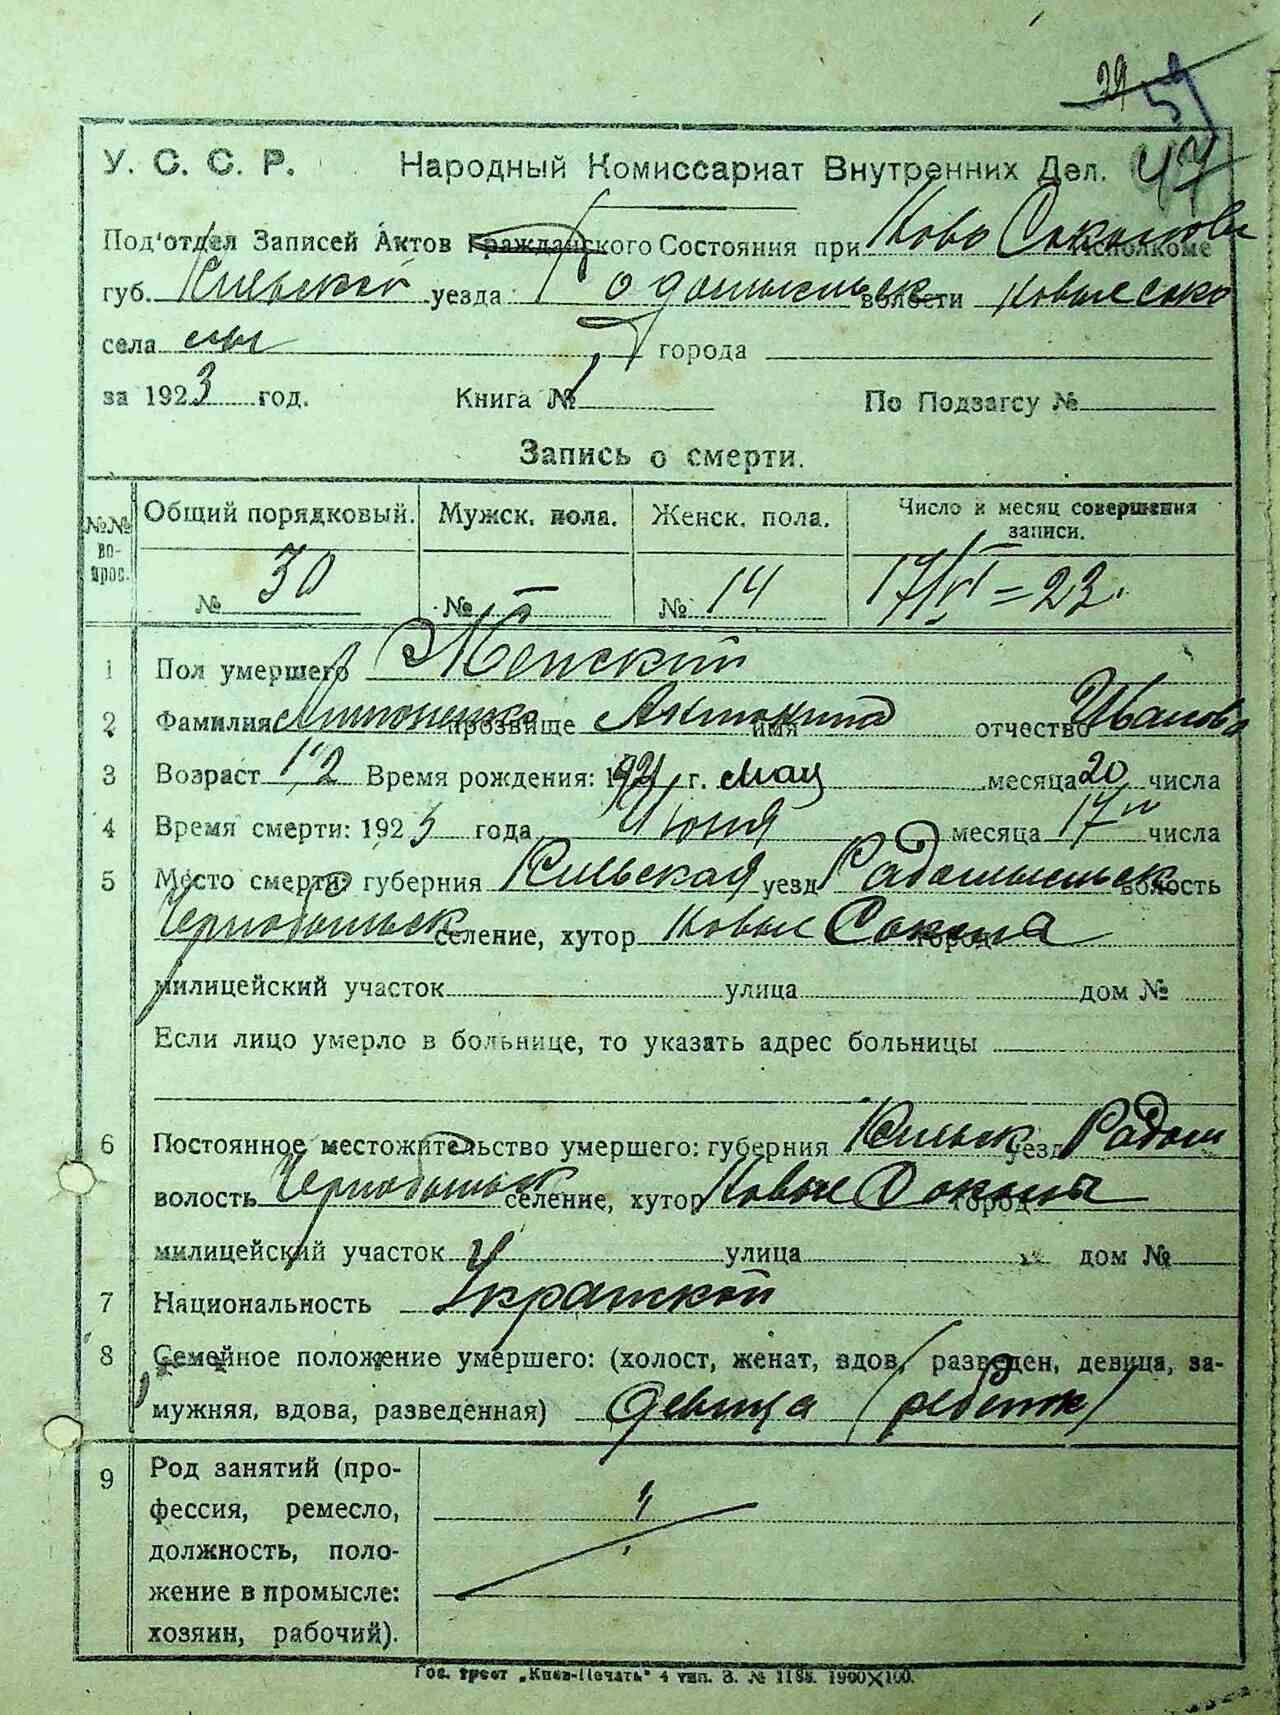 29 59
У. С. С. Р. Народный Комиссариат Внутренних Дел. 47
Под'отдел Записей Актов Гражданского Состояния при Ново Соколовс Исполкоме
губ. Киевской уезда Радомысльск волости Новые Соко
села лы города
за 1923 год. Книга № 1 По Подзагсу №
Запись о смерти.
№№ во- прос. Общий порядковый. Мужск. пола. Женск. пола. Число и месяц совершения записи.
№ 30 № — № 14 17/VI = 23.
1 Пол умершего Женский
2 Фамилия прозвище имя отчество Иванова
3 Возраст 1 1/2 Время рождения: 1921 г. мац месяца 20 числа
4 Время смерти: 1923 года Июня месяца 17го числа
5 Место смерти: губерния Киевская уезд Радомысльск волость
Чернобыльск селение, хутор Новые Сокола город
милицейский участок улица дом №
Если лицо умерло в больнице, то указать адрес больницы
6 Постоянное местожительство умершего: губерния Киевск уезд Радом
волость Чернобыльск селение, хутор Новые Соколы город
милицейский участок улица дом №
7 Национальность
8 Семейное положение умершего: (холост, женат, вдов, разведен, девица, за-
мужняя, вдова, разведенная) девица (ребенок)
9 Род занятий (про-
фессия, ремесло,
должность, поло-
жение в промысле:
хозяин, рабочий).
Гос. трест „Киев-Печать" 4 тип. З. № 1185. 1900X100.